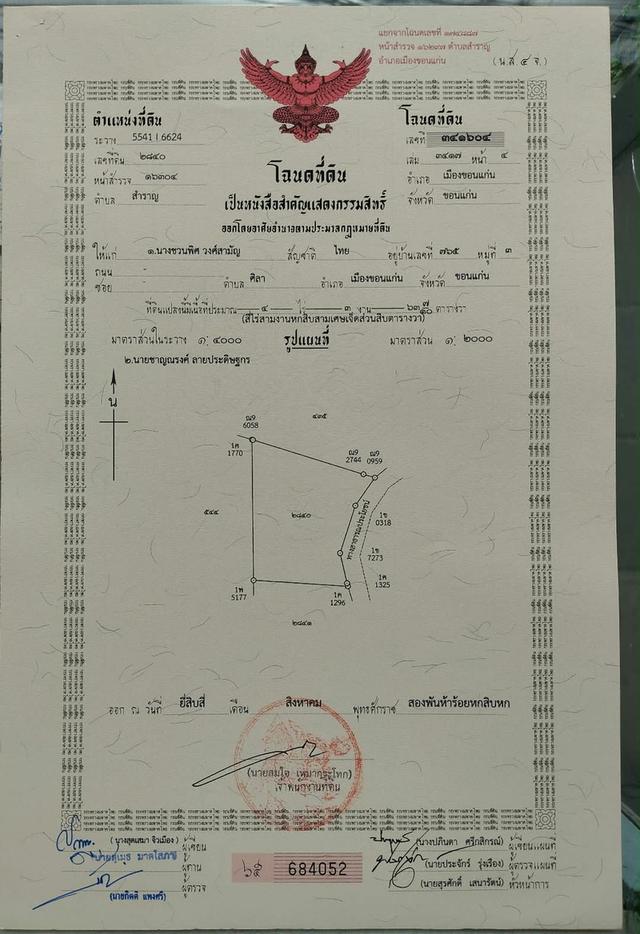 แยกจากโฉนดเลขที่ ๑๗๔๘๘๗
หน้าสำรวจ ๑๖๒๙๗ ตำบลสำราญ
อำเภอเมืองขอนแก่น
(น.ส.๔ จ.)
ตำแหน่งที่ดิน
ระวาง 5541 I 6624
เลขที่ดิน ๒๘๔๐
หน้าสำรวจ ๑๖๓๐๔
ตำบล สำราญ
โฉนดที่ดิน
เลขที่ ๓๔๑๖๐๔
เล่ม ๓๔๑๗ หน้า ๔
อำเภอ เมืองขอนแก่น
จังหวัด ขอนแก่น
โฉนดที่ดิน
เป็นหนังสือสำคัญแสดงกรรมสิทธิ์
ออกโดยอาศัยอำนาจตามประมวลกฎหมายที่ดิน
ให้แก่ ๑.นางชวนพิศ วงศ์สามัญ สัญชาติ ไทย อยู่บ้านเลขที่ ๗๖๕ หมู่ที่ ๓
ถนน - ตำบล ศิลา อำเภอ เมืองขอนแก่น จังหวัด ขอนแก่น
ซอย -
ที่ดินแปลงนี้มีเนื้อที่ประมาณ ๔ ไร่ ๓ งาน ๖๓ ๗/๑๐ ตารางวา
(สี่ไร่สามงานหกสิบสามเศษเจ็ดส่วนสิบตารางวา)
มาตราส่วนในระวาง ๑: ๔๐๐๐ รูปแผนที่ มาตราส่วน ๑: ๒๐๐๐
๒.นายชาญณรงค์ ลายประดิษฐกร
น
๔๓๕
ณ9
6058
1ค
1770
ณ9
2744
ณ9
0959
๕๔๔
๒๘๔๐
ทางสาธารณประโยชน์
1ข
0318
1ข
7273
1ค
1325
1พ
5177
1ค
1296
๒๘๔๑
ออก ณ วันที่ ยี่สิบสี่ เดือน สิงหาคม พุทธศักราช สองพันห้าร้อยหกสิบหก
(นายสมใจ เหมากระโทก)
เจ้าพนักงานที่ดิน
(นางสุดเสมา จิวเมือง) ผู้เขียน
ผู้ทาน
(นายกิตติ แพงศรี) ผู้ตรวจ
๖๕ 684052
(นางปภินดา ศรีกสิกรณ์) ผู้เขียนแผนที่
(นายประจักร์ รุ่งเรือง) ผู้ตรวจแผนที่
(นายสุรศักดิ์ เสนารัตน์) หัวหน้าการ